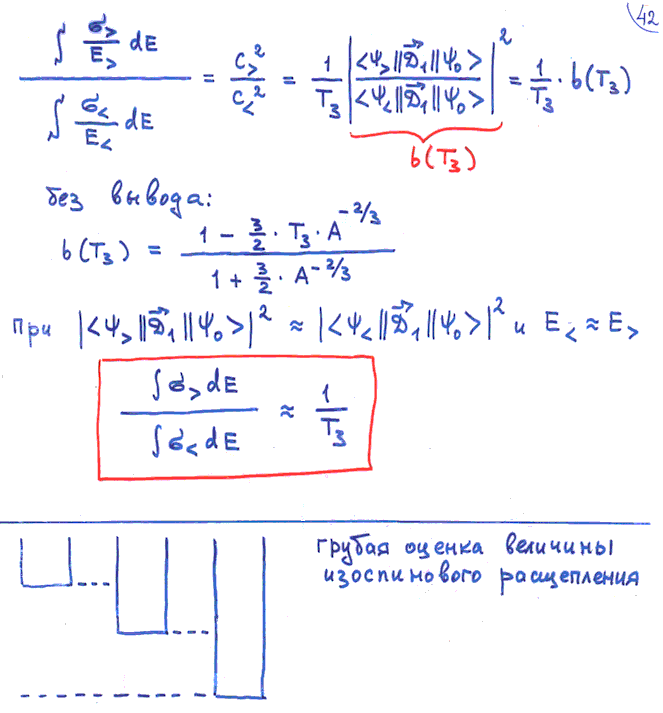 42
∫ σ_>/E_> dE / ∫ σ_</E_< dE = C_>²/C_<² = 1/T₃ |<Ψ_>||D⃗₁||Ψ₀> / <Ψ_<||D⃗₁||Ψ₀>|² = 1/T₃ · b(T₃)
b(T₃)
без вывода:
b(T₃) = (1 − 3/2 · T₃ · A^(−2/3)) / (1 + 3/2 · A^(−2/3))
При |<Ψ_>||D⃗₁||Ψ₀>|² ≈ |<Ψ_<||D⃗₁||Ψ₀>|² и E_< ≈ E_>
∫σ_> dE / ∫σ_< dE ≈ 1/T₃
грубая оценка величины
изоспинового расщепления